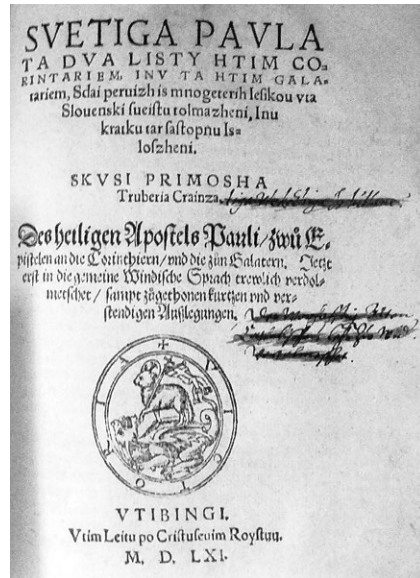 SVETIGA PAVLA
TA DVA LISTY HTIM CO-
RINTARIEM, INV TA HTIM GALA-
tariem, Sdai peruizh is mnogeterih Iesikou vta
Slouenski sueistu tolmazheni, Inu
kratku tar saſtopnu Is-
loszheni.
SKVSI PRIMOSHA
Truberia Crainza
Des heiligen Apostels Pauli/ zwů E-
pistelen an die Corinthiern/ vnd die zůn Galatern. Jetzt
erst in die gemeine Windische Sprach trewlich verdol-
metschet/ sampt zůgethonen kurtzen vnd ver-
stendigen Außlegungen.
VICTORIA
VTIBINGI.
Vtim Leitu po Cristuseuim Roystuu.
M. D. LXI.